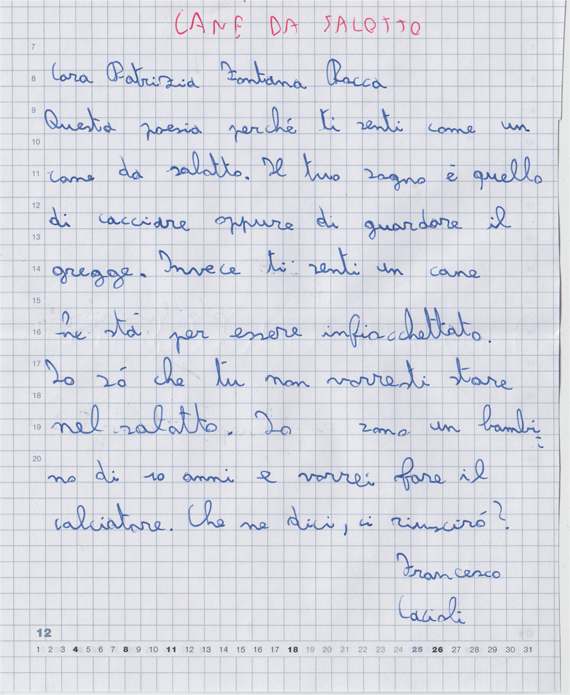 CANE DA SALOTTO
7
8 Cara Patrizia Fontana Rocca
9 Questa poesia perché ti senti come un
10
11 cane da salotto. Il tuo sogno è quello
12 di cacciare oppure di guardare il
13
14 gregge. Invece ti senti un cane
15
16 he stá per essere infiacchettato.
17 Io só che tu non vorresti stare
18
19 nel salotto. Io sono un bambi=
20 no di 10 anni e vorrei fare il
calciatore. Che ne dici, ci riusciró?
Francesco
Cacioli
12
1 2 3 4 5 6 7 8 9 10 11 12 13 14 15 16 17 18 19 20 21 22 23 24 25 26 27 28 29 30 31